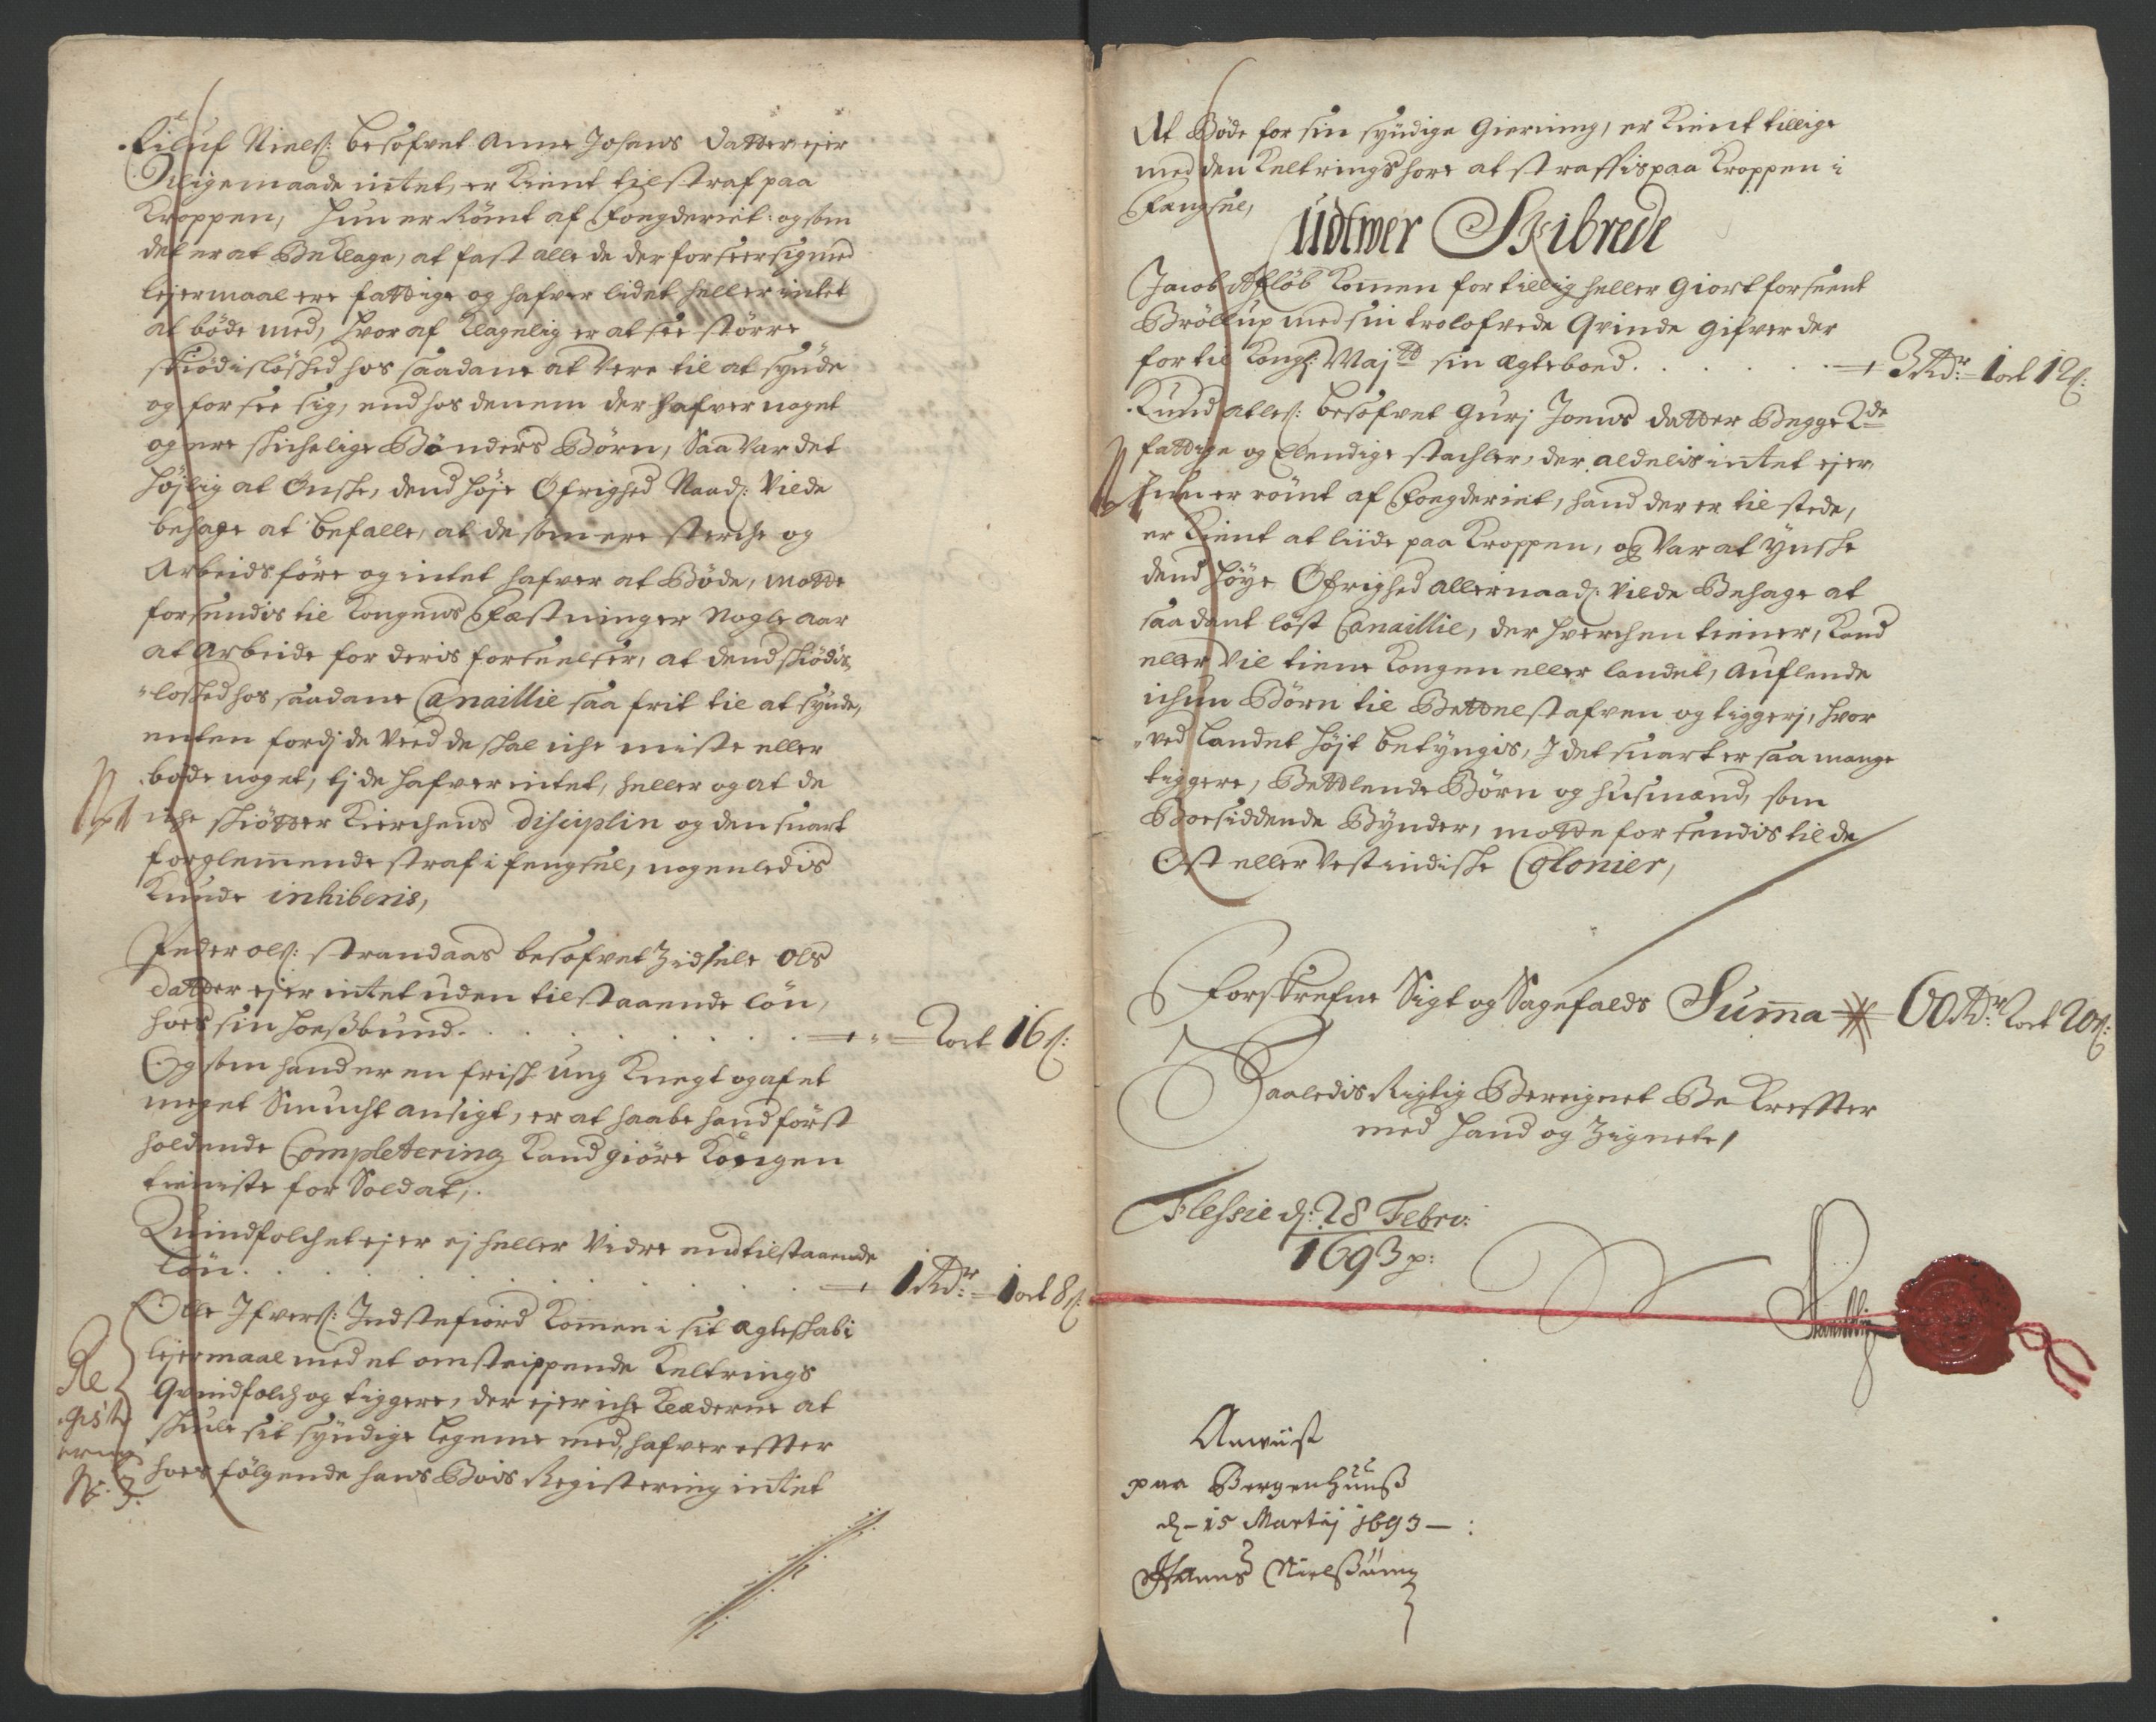 Eiluf Niels: besofvet Anne Johans datter ejer
Iligemaade intet, er kient til straf paa
kroppen, hun er Römt af fougderiet: og som
det er at Beklage, at fast alle de der forseer sig med
lejermaal ere fattige og hafver lidet heller intet
at böde med, hvoraf klagelig er at see större
skiödislöshed hos saadane at vere til at synde
og forsee sig, end hos denem der hafver noget
og ere skichelige Bönders Börn, Saa var det
höjlig at Önske, dend höje Öfrighed Naad: vilde
behage at befalle, at de som ere sterche og
Arbeidsföre og intet hafver at Böde, motte
forsendis til Kongens Fæstninger Nogle aar
at Arbeide for deris forseelser, at dend skiödis¬
löshed hos saadane Canaillie saa frit til at synde,
enten fordj de veed de skal iche miste eller
böde noget, tj de hafver intet, heller og at de
iche skiötter Kierchens Disciplin og den snart
forglemende straf i fengsel, nogenledis
kunde inhiberis,
Peder Ols: Strandaas besofvet Zidsele Ols
datter ejer intet uden tilstaaende lön,
hoes sin hoesbund. . . . . . 2 ort 16 s:
Og som hand er en frisk ung Knegt og af et
meget Smucht ansigt, er at haabe hand först
holdende Completering kand giöre Kongen
tieniste for Soldat,
Quindfolchet ejer ej heller vidre end tilstaaende
lön. . . . . . . 1 Rdr: 1 ort 8 s:
Olle Ifvers: Indstefiord komen i sit ægteskab i
lejermaal med et omstrippende Keltrings
Qvindfolch og tiggere, der ejer iche klæderne at
skiule sit syndige legeme med, hafver effter
hoes fölgende hans Bois Registering intet
Re
gist
ering
No. 3.
At Böde for sin syndige Gierning, er kient tillige
med den Keltrings hore at straffis paa kroppen i
Fængsel,
Udtwer Skibrede
Jacob Aflöb komen for tillig heller giort for seent
Bröllup med sin trolofvede Qvinde gifver der
for til Kongl: Maj:tt sin ægteboed. . . . . 3 Rdr: 1 ort 12 s:
Knud Atles: besofvet Gurj Joens datter Begge 2de
fattige og Elendige stachler, der aldelis intet ejer,
hun er römt af Fougderiet, hand der er til stede,
er kient at liide paa kroppen, og var at ynske
dend höye Öfrighed allernaad: vilde Behage at
saadant löst Canaillie, der hverchen tiener, kand
eller vil tiene Kongen eller landet, Auflende
ichun Börn til Bettelstafven og tiggerj, hvor
ved landet höjt betyngis, J det snart er saa mange
tiggere, Bettlende Börn og husmænd, som
Boesiddende Bynder, motte forsendis til de
Ost eller Vestindiske Colonier,
Forskrefne Sigt og Sagefalds Suma 60 Rdr: 2 ort 20 s:
Saaledis Rigtig Beregnet Bekreffter
med haand og Zignete,
Flessie d: 28 Febru:
1693 p:
Anviist
paa Bergenhuuss
d - 15 Martij 1693 - :
Hanns Nielssönn